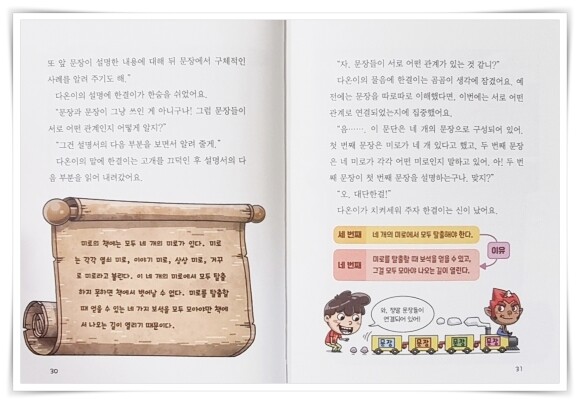 또 앞 문장이 설명한 내용에 대해 뒤 문장에서 구체적인
사례를 알려 주기도 해.”
다온이의 설명에 한결이가 한숨을 쉬었어요.
“문장과 문장이 그냥 쓰인 게 아니구나! 그럼 문장들이
서로 어떤 관계인지 어떻게 알지?”
“그건 설명서의 다음 부분을 보면서 알려 줄게.”
다온이의 말에 한결이는 고개를 끄덕인 후 설명서의 다
음 부분을 읽어 내려갔어요.
미로의 책에는 모두 네 개의 미로가 있다. 미로
는 각각 열쇠 미로, 이야기 미로, 상상 미로, 거꾸
로 미로라고 불린다. 이 네 개의 미로에서 모두 탈출
하지 못하면 책에서 벗어날 수 없다. 미로를 탈출할
때 얻을 수 있는 네 가지 보석을 모두 모아야만 책에
서 나오는 길이 열리기 때문이다.
30
“자, 문장들이 서로 어떤 관계가 있는 것 같니?”
다온이의 물음에 한결이는 곰곰이 생각에 잠겼어요. 예
전에는 문장을 따로따로 이해했다면, 이번에는 서로 어떤
관계로 연결되었는지에 집중했어요.
“음……. 이 문단은 네 개의 문장으로 구성되어 있어.
첫 번째 문장은 미로가 네 개 있다고 했고, 두 번째 문장
은 네 미로가 각각 어떤 미로인지 말하고 있어. 아! 두 번
째 문장이 첫 번째 문장을 설명하는구나. 맞지?”
“오, 대단한걸!”
다온이가 치켜세워 주자 한결이는 신이 났어요.
세 번째 네 개의 미로에서 모두 탈출해야 한다.
이유
네 번째 미로를 탈출할 때 보석을 얻을 수 있고,
그걸 모두 모아야 나오는 길이 열린다.
와, 정말 문장들이
연결되어 있어!
문장 문장 문장 문장
31